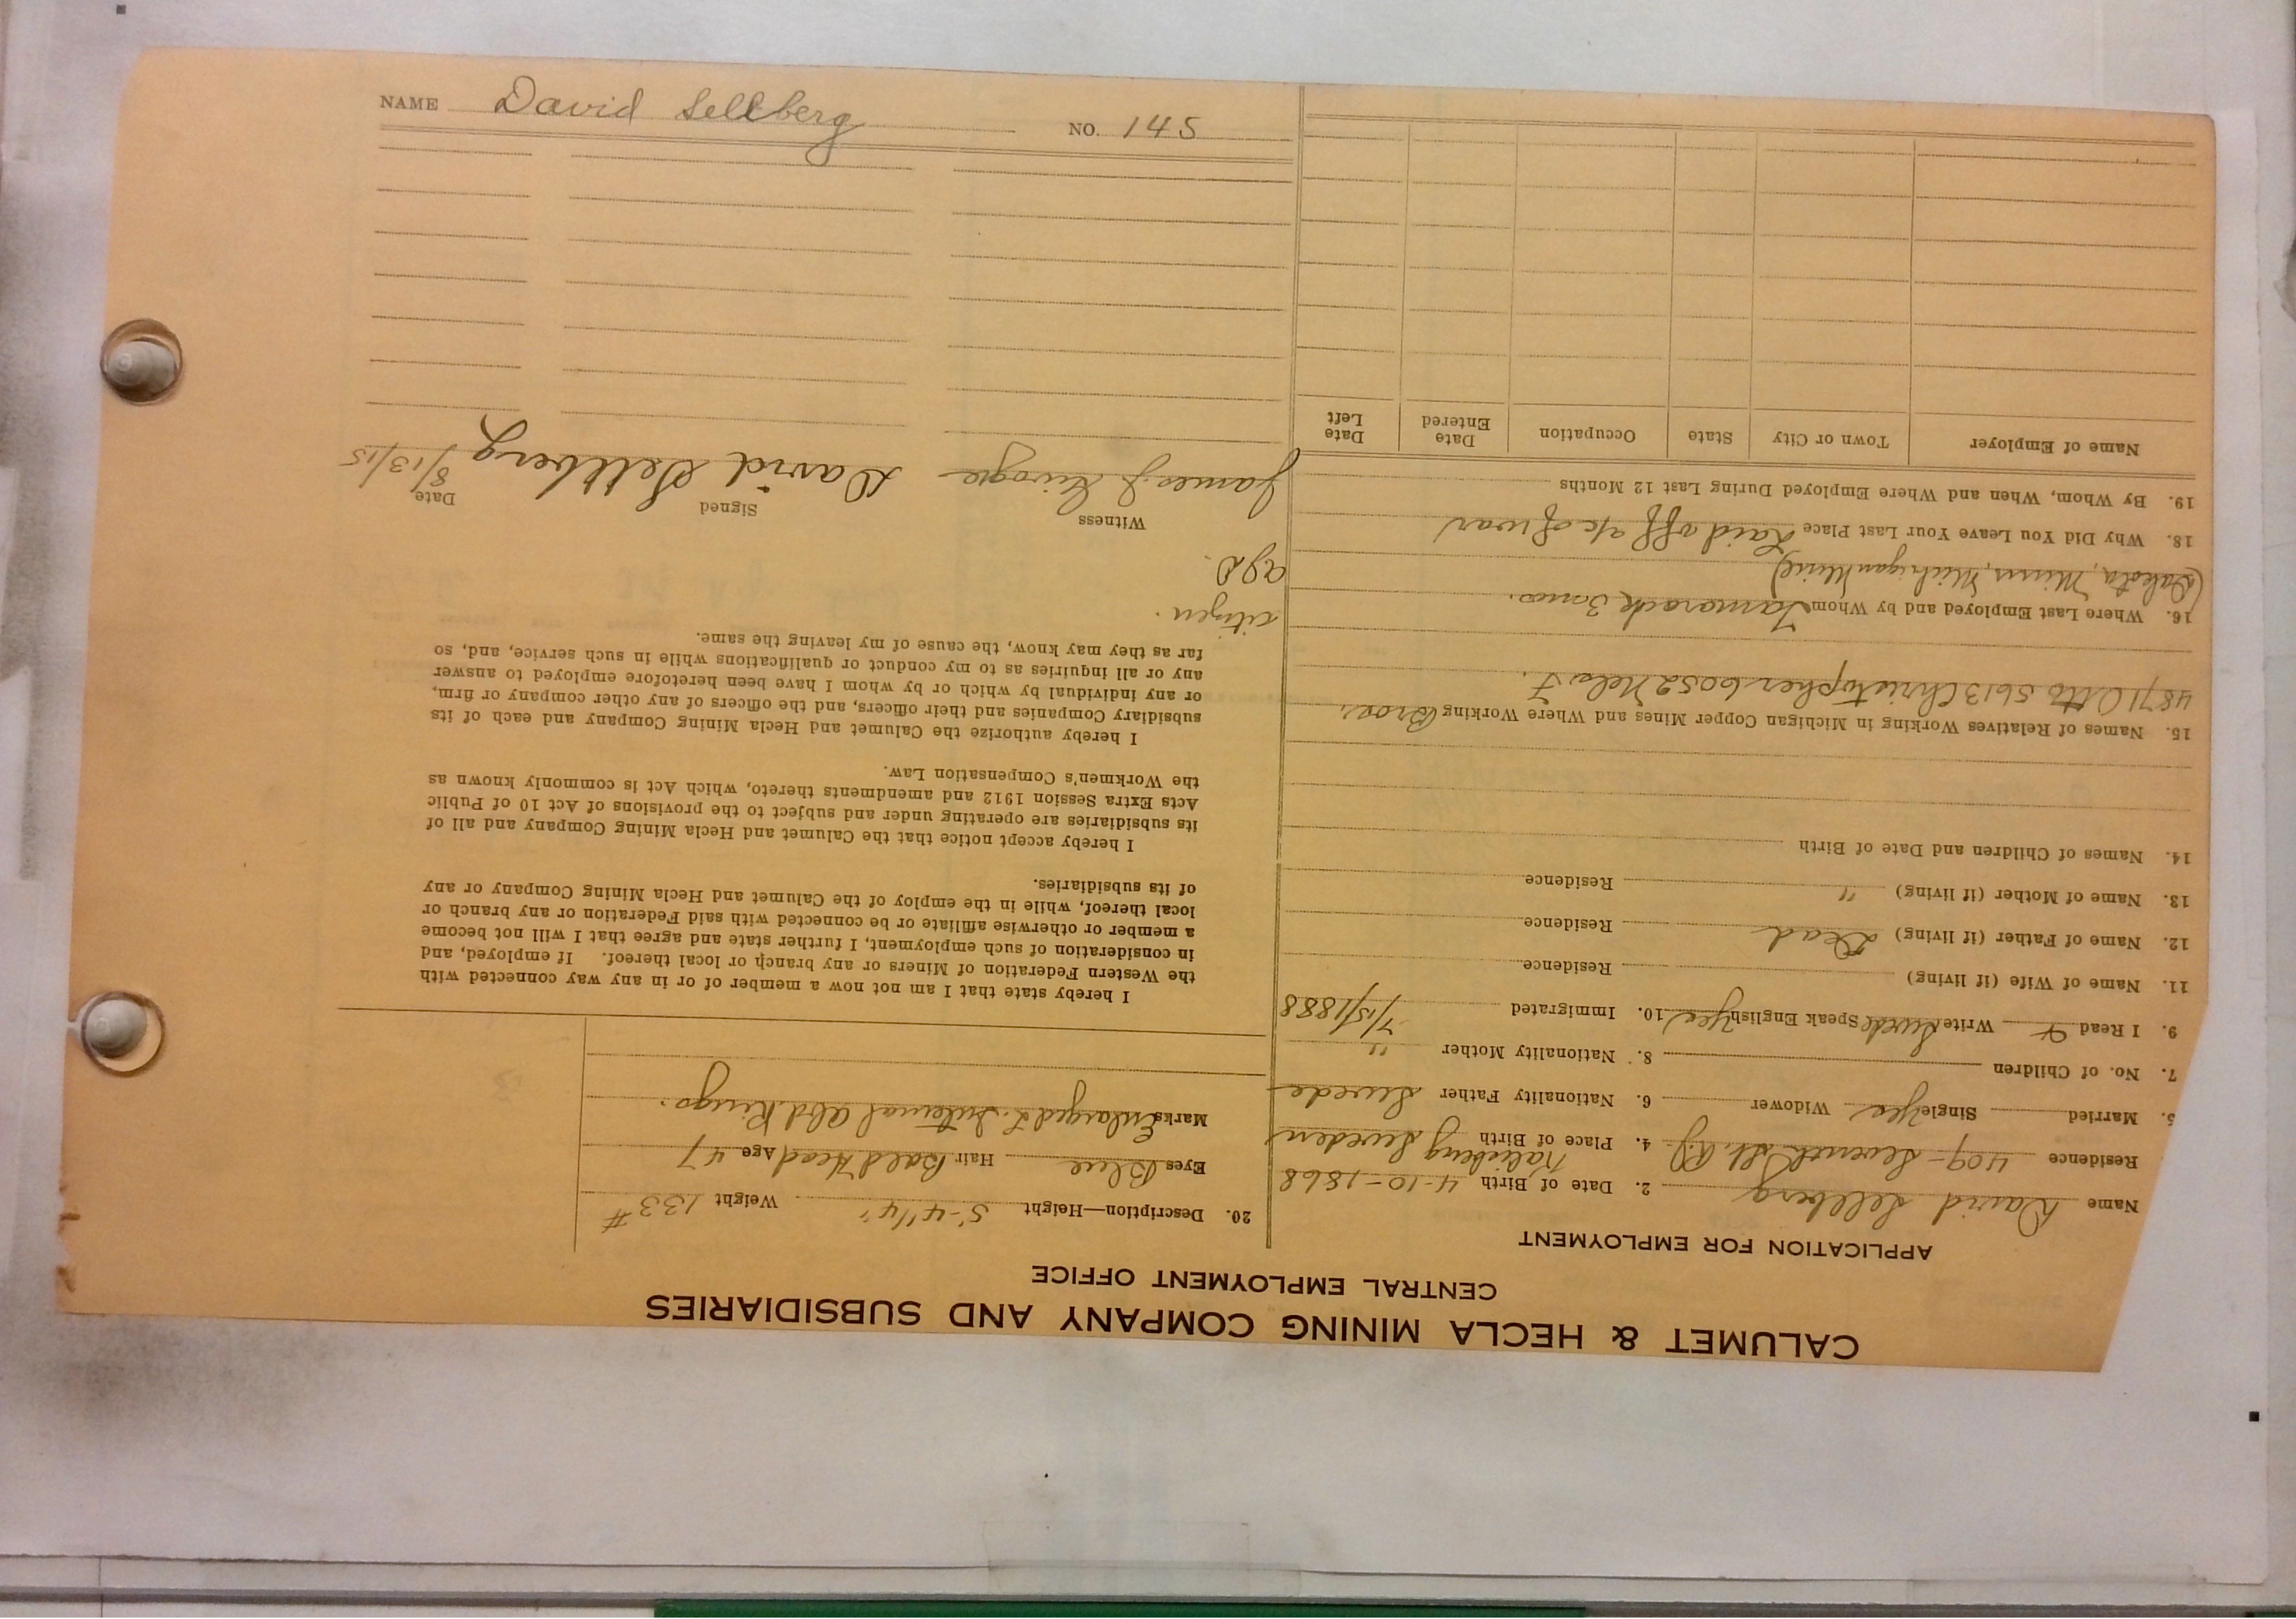 NAME David Sellberg NO. 145
CALUMET & HECLA MINING COMPANY AND SUBSIDIARIES
CENTRAL EMPLOYMENT OFFICE
APPLICATION FOR EMPLOYMENT
Name David Sellberg 2. Date of Birth 4-10-1868
Residence 409-Seventh St. 4. Place of Birth Sweden
5. Married Single Yes Widower 6. Nationality Father Swede
7. No. of Children 8. Nationality Mother "
9. I Read & Write Swede Speak English Yes 10. Immigrated 7/15/1888
11. Name of Wife (if living) Residence
12. Name of Father (if living) Dead Residence
13. Name of Mother (if living) " Residence
14. Names of Children and Date of Birth
15. Names of Relatives Working in Michigan Copper Mines and Where Working Bros.
4871 Otto 5613 Christopher 6052 Nels F.
16. Where Last Employed and by Whom Tamarack 3 mos.
(Dakota, Minn, Michigan Mine)
18. Why Did You Leave Your Last Place Laid off a/c of war
19. By Whom, When and Where Employed During Last 12 Months
Name of Employer Town or City State Occupation Date Entered Date Left
20. Description—Height 5'-4 1/4" Weight 133 #
Eyes Blue Hair Bald Head Age 47
Marks Enlarged L. Internal Abd. Rings.
I hereby state that I am not now a member of or in any way connected with
the Western Federation of Miners or any branch or local thereof. If employed, and
in consideration of such employment, I further state and agree that I will not become
a member or otherwise affiliate or be connected with said Federation or any branch or
local thereof, while in the employ of the Calumet and Hecla Mining Company or any
of its subsidiaries.
I hereby accept notice that the Calumet and Hecla Mining Company and all of
its subsidiaries are operating under and subject to the provisions of Act 10 of Public
Acts Extra Session 1912 and amendments thereto, which Act is commonly known as
the Workmen's Compensation Law.
I hereby authorize the Calumet and Hecla Mining Company and each of its
subsidiary Companies and their officers, and the officers of any other company or firm,
or any individual by which or by whom I have been heretofore employed to answer
any or all inquiries as to my conduct or qualifications while in such service, and, so
far as they may know, the cause of my leaving the same.
citizen.
Witness Signed Date
James J. David Sellberg 8/13/15